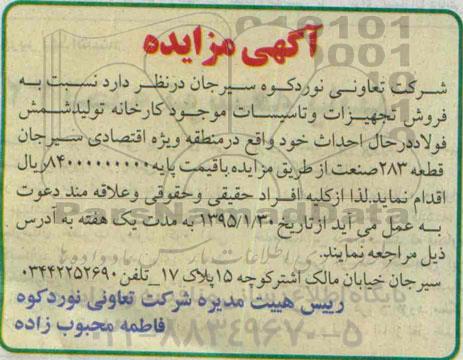 آگهی مزایده
شرکت تعاونی نوردکوه سیرجان درنظر دارد نسبت به
فروش تجهیزات وتاسیسات موجود کارخانه تولیدشمش
فولاددرحال احداث خود واقع درمنطقه ویژه اقتصادی سیرجان
قطعه ۲۸۳صنعت از طریق مزایده باقیمت پایه۸۴۰۰۰۰۰۰۰۰۰ریال
اقدام نماید.لذا ازکلیه افراد حقیقی وحقوقی وعلاقه مند دعوت
به عمل می آید از تاریخ ۱۳۹۵/۱/۳۰ به مدت یک هفته به آدرس
ذیل مراجعه نمایند.
سیرجان خیابان مالک اشترکوچه ۱۵پلاک ۱۷_تلفن ۰۳۴۴۲۲۵۲۶۹۰
رییس هییت مدیره شرکت تعاونی نوردکوه
فاطمه محبوب زاده
ParsNamadData
۰۲۱-۸۸۳۴۹۶۷۰-۵